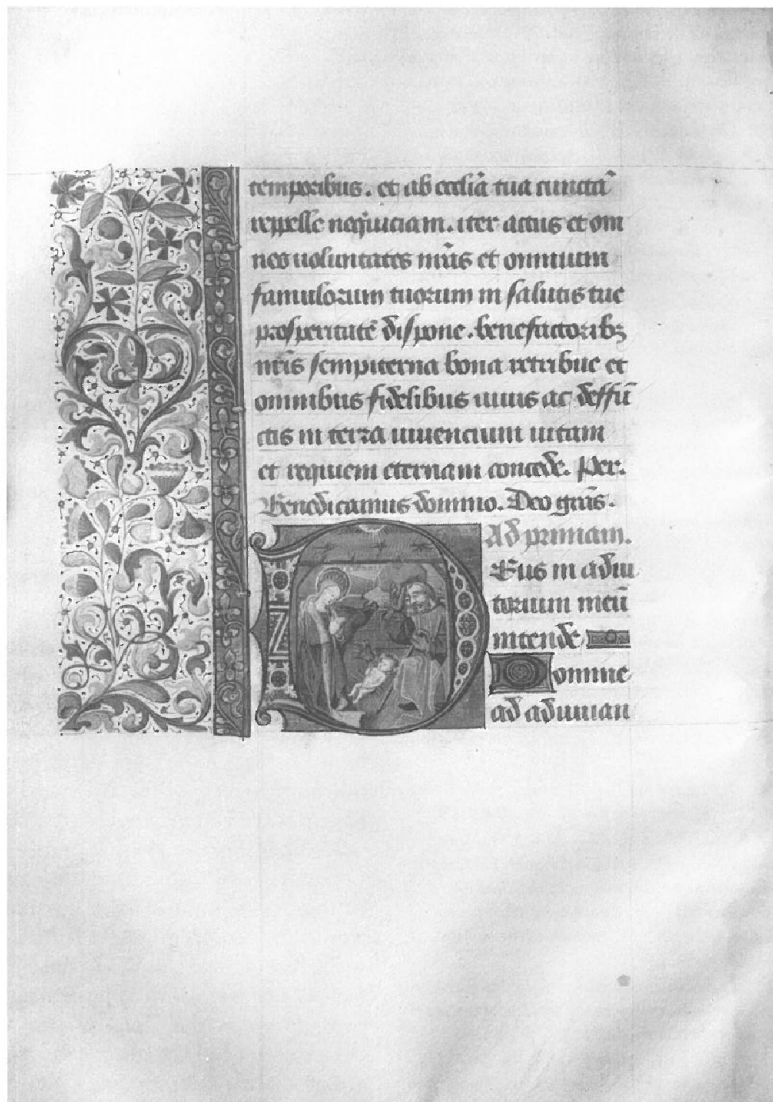 temporibus. et ab ecclīa tua cunctā
repelle neq̄uiciam. iter actus et om
nes uoluntates nr̄as et omnium
famulorum tuorum in salutis tue
prosperitatē dispone. benefactoribȝ
nr̄is sempiterna bona retribue et
omnibus fidelibus uiuis ac deffū
ctis in terra uiuencium uitam
et requiem eternam concede. Per.
Benedicamus domino. Deo gr̄as.
Ad primam.
DEus in adiu
torium meū
intende
Domine
ad adiuuan